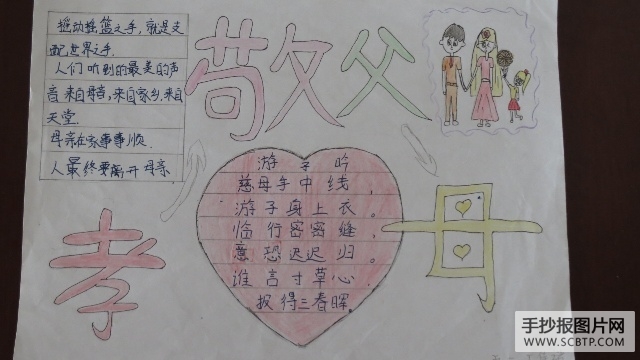 摇动摇篮之手，就是支
配世界之手.
人们听到的最美的声
音来自母亲,来自家乡,来自
天堂
母亲在家事事顺.
人最终要离开母亲
敬父
孝
母
游子吟
慈母手中线，
游子身上衣。
临行密密缝，
意恐迟迟归。
谁言寸草心，
报得三春晖。
手抄报图片网
WWW.SCBTP.COM